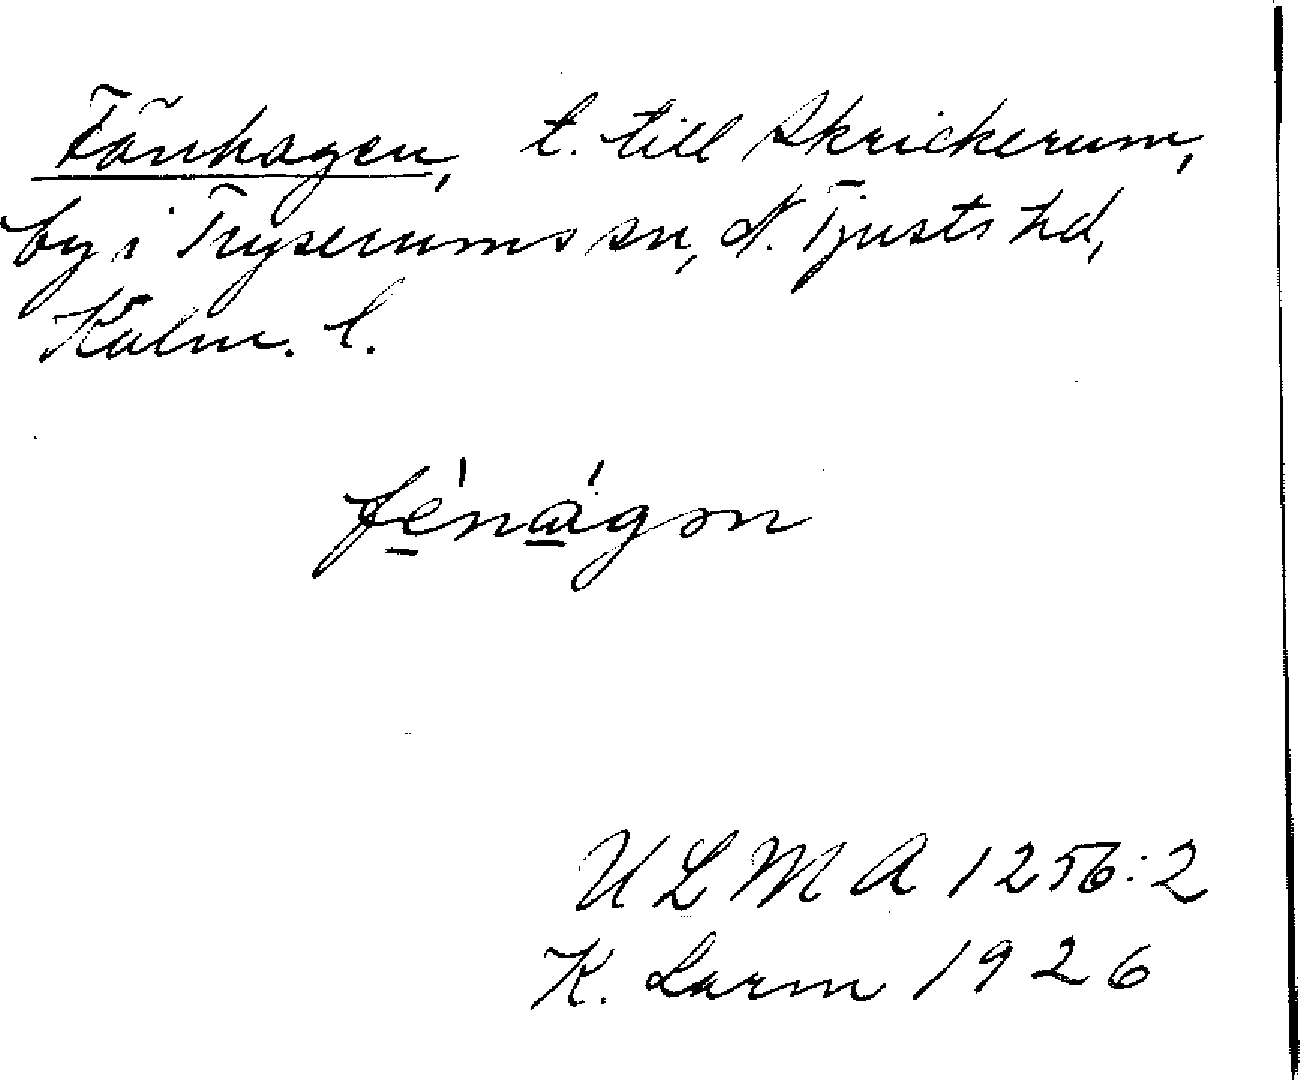 Fånhagen, t. till Skrickerum,
by i Tryserums sn, N. Tjusts hd,
Kalm. l.
ULMA 1256:2
K. Larm 1926